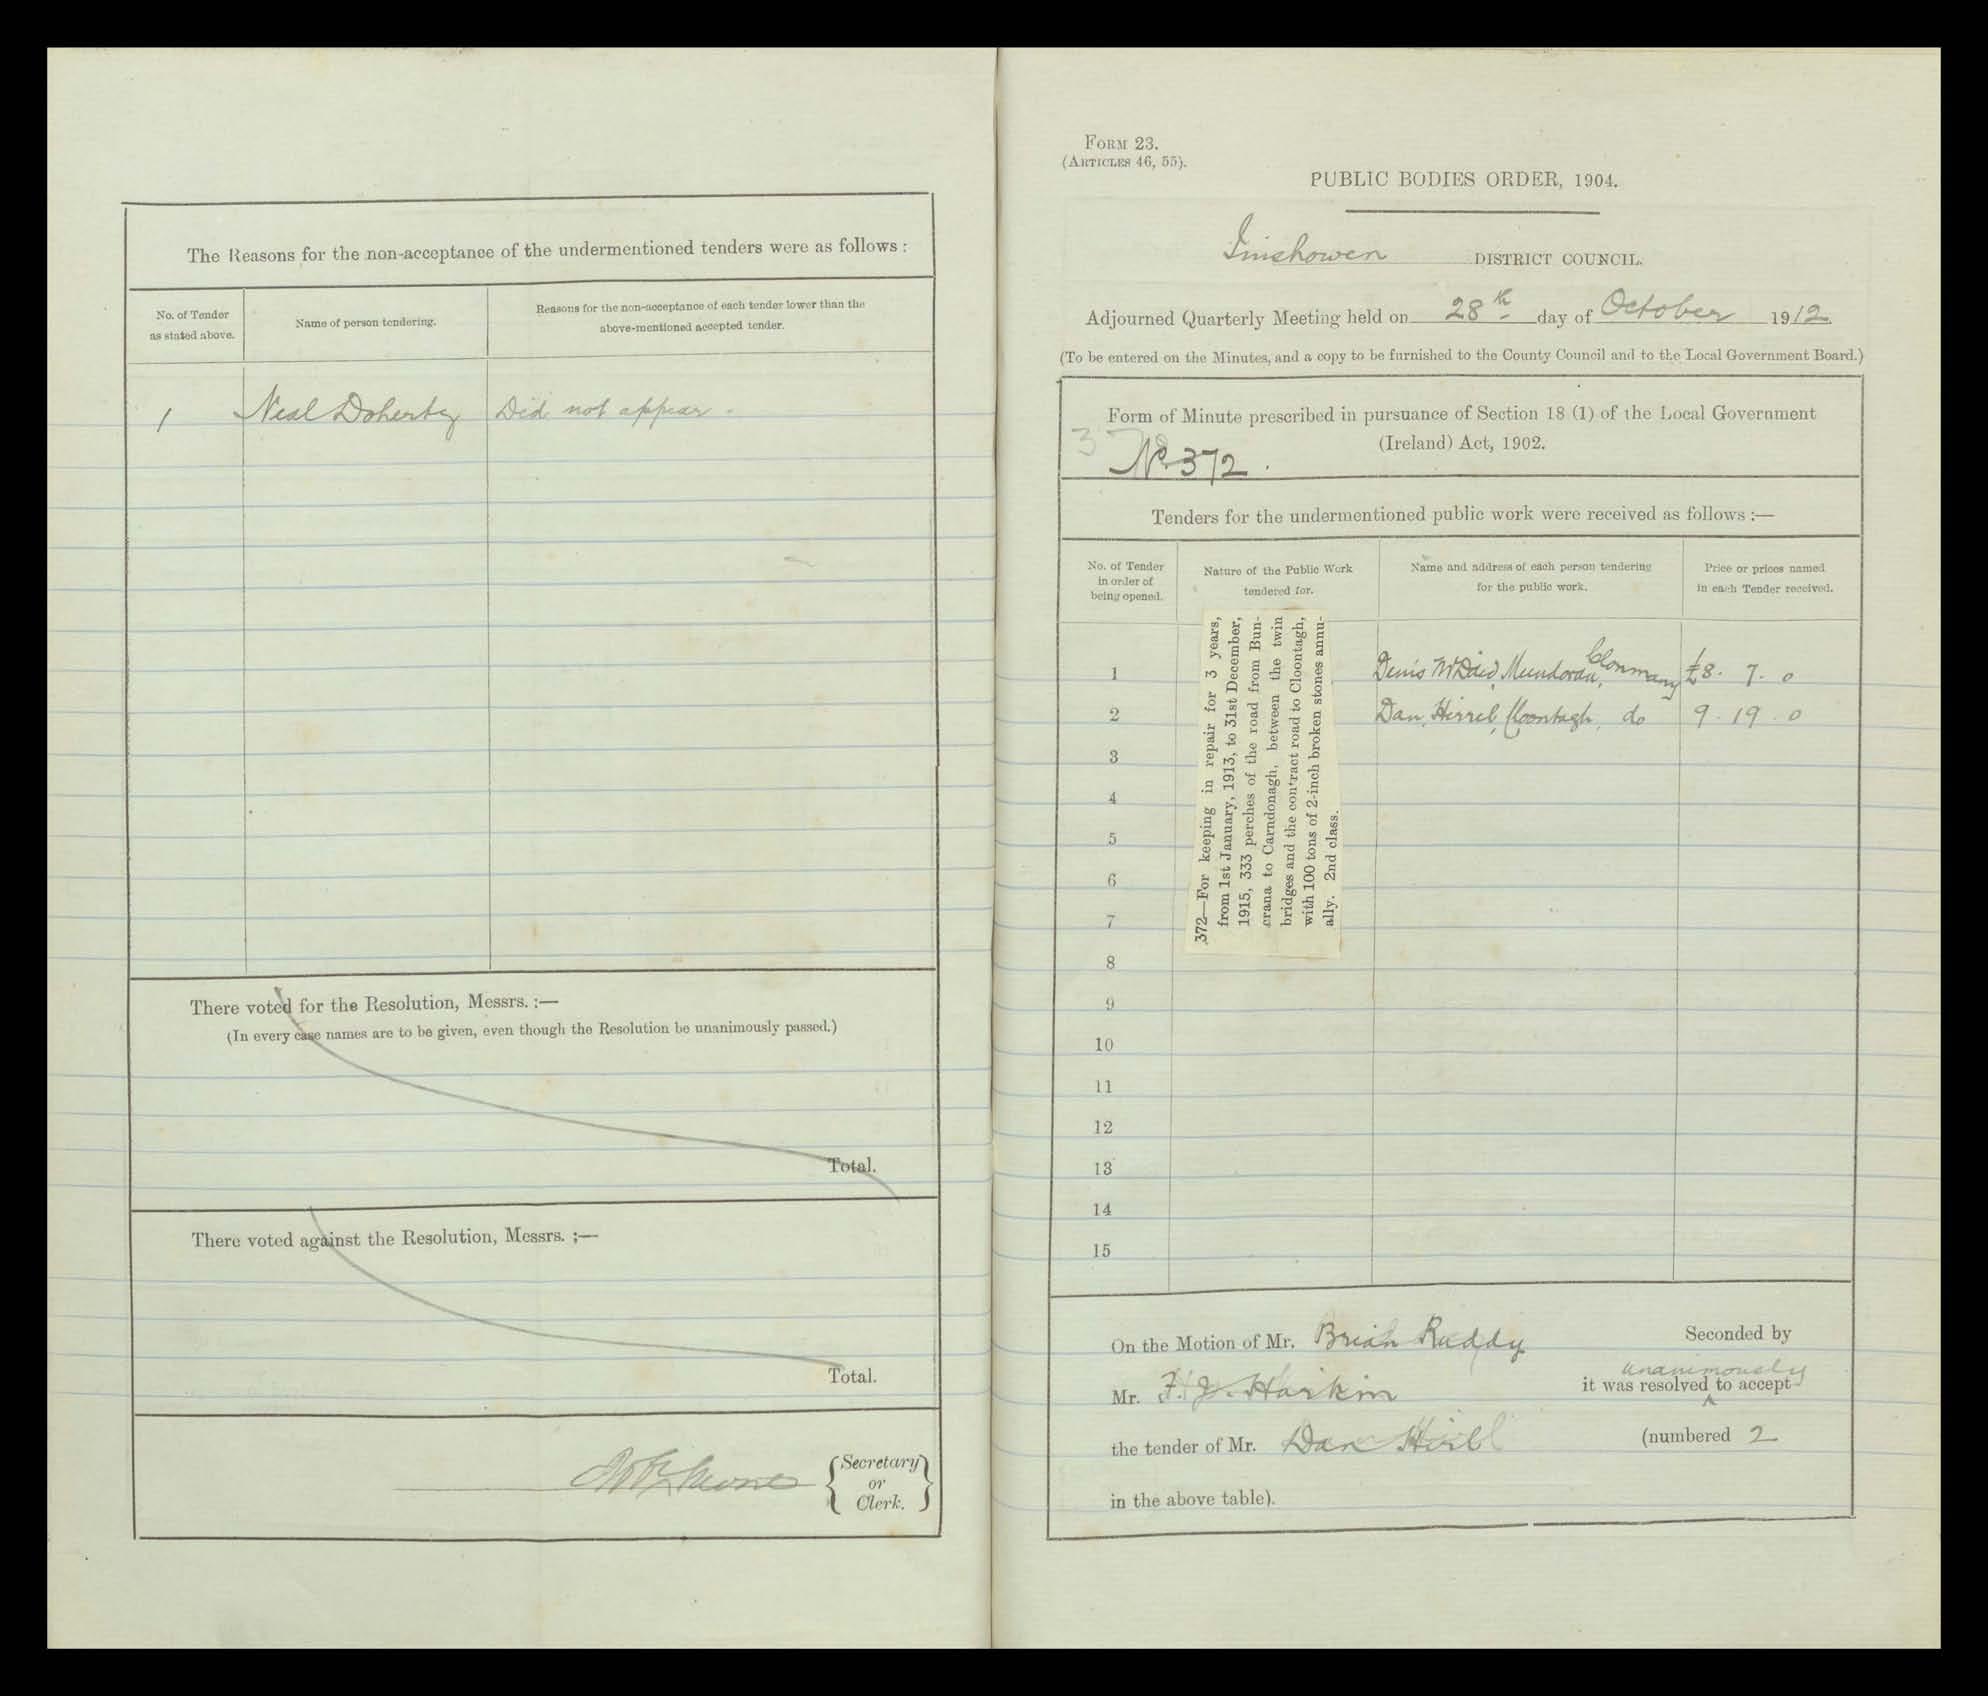 The Reasons for the non-acceptance of the undermentioned tenders were as follows :
No. of Tender
as stated above.
Name of person tendering.
Reasons for the non-acceptance of each tender lower than the
above-mentioned accepted tender.
1 Neal Doherty Did not appear.
There voted for the Resolution, Messrs. :—
(In every case names are to be given, even though the Resolution be unanimously passed.)
Total.
There voted against the Resolution, Messrs. :—
Total.
Secretary
or
Clerk.
FORM 23.
(ARTICLES 46, 55).
PUBLIC BODIES ORDER, 1904.
Inishowen DISTRICT COUNCIL.
Adjourned Quarterly Meeting held on 28th day of October 1912
(To be entered on the Minutes, and a copy to be furnished to the County Council and to the Local Government Board.)
Form of Minute prescribed in pursuance of Section 18 (1) of the Local Government
(Ireland) Act, 1902.
No 372.
Tenders for the undermentioned public work were received as follows :—
No. of Tender
in order of
being opened.
Nature of the Public Work
tendered for.
Name and address of each person tendering
for the public work.
Price or prices named
in each Tender received.
372—For keeping in repair for 3 years,
from 1st January, 1913, to 31st December,
1915, 333 perches of the road from Bun-
crana to Carndonagh, between the twin
bridges and the contract road to Cloontagh,
with 100 tons of 2-inch broken stones annu-
ally. 2nd class.
1 Denis McDaid, Mundoran, Clonmany £8. 7. 0
2 Dan. Hirrel, Cloontagh, do 9. 19. 0
3
4
5
6
7
8
9
10
11
12
13
14
15
On the Motion of Mr. Brian Ruddy Seconded by
Mr. F. J. Harkin it was resolved unanimously to accept
the tender of Mr. Dan Hirrl (numbered 2
in the above table).